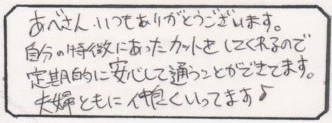 あべさん、いつもありがとうございます。
自分の特徴にあったカットをしてくれるので
定期的に安心して通うことができてます。
夫婦ともに仲良くいってます♪